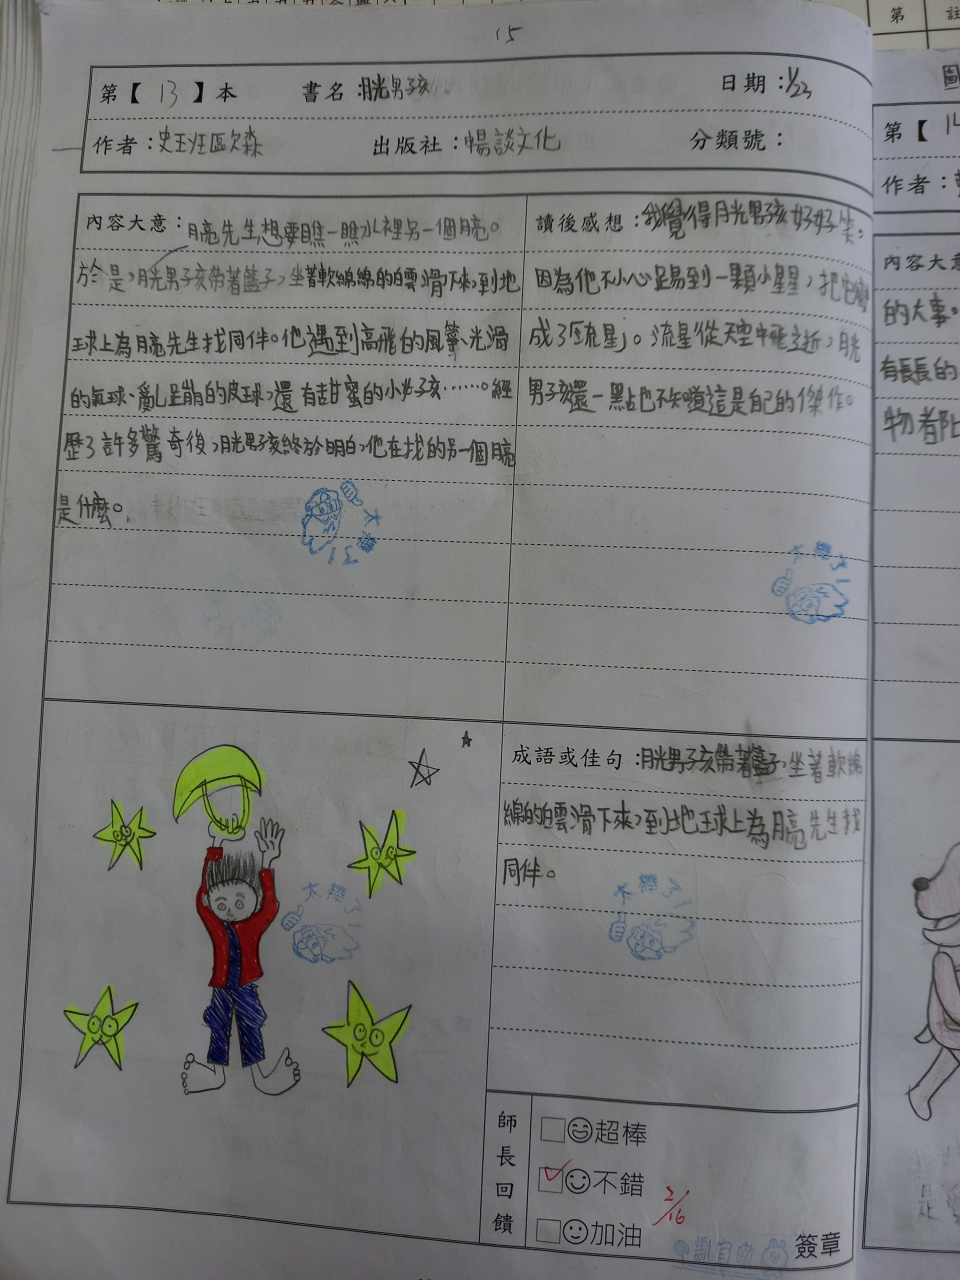 15
第【 13 】本 書名：月光男孩 日期：1/23
作者：史班歐森 出版社：暢談文化 分類號：
內容大意：月亮先生想要瞧一瞧水裡另一個月亮。
於是，月光男孩帶著籃子，坐著軟綿綿的白雲滑下來，到地
球上為月亮先生找同伴。他遇到高飛的風箏、光滑
的氣球、亂蹦的皮球，還有甜蜜的小女孩……。經
歷了許多驚奇後，月光男孩終於明白，他在找的另一個月亮
是什麼。
讀後感想：我覺得月光男孩好好笑。
因為他不小心踢到一顆小星星，把它變
成了「流星」。流星從天空中飛逝，月光
男孩還一點也不知道這是自己的傑作。
太棒了！
太棒了！
成語或佳句：月光男孩帶著籃子，坐著軟綿
綿的白雲滑下來，到地球上為月亮先生找
同伴。
太棒了！
太棒了！
師長回饋
超棒
不錯
加油
2/16
簽章
第【 14
作者：
內容大意
的大事。
有長長的
物都
第